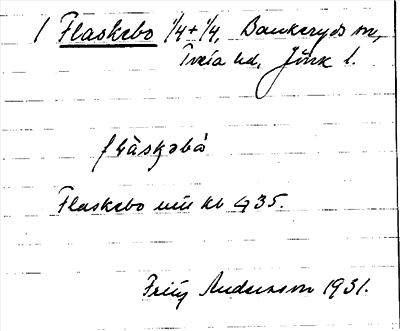 1 Flaskebo 1/4+1/4, Bankeryds sn,
Tveta hd, Jönk l.
flàskəbå
Flaskebo uu kb 435.
Fritz Anderson 1931.